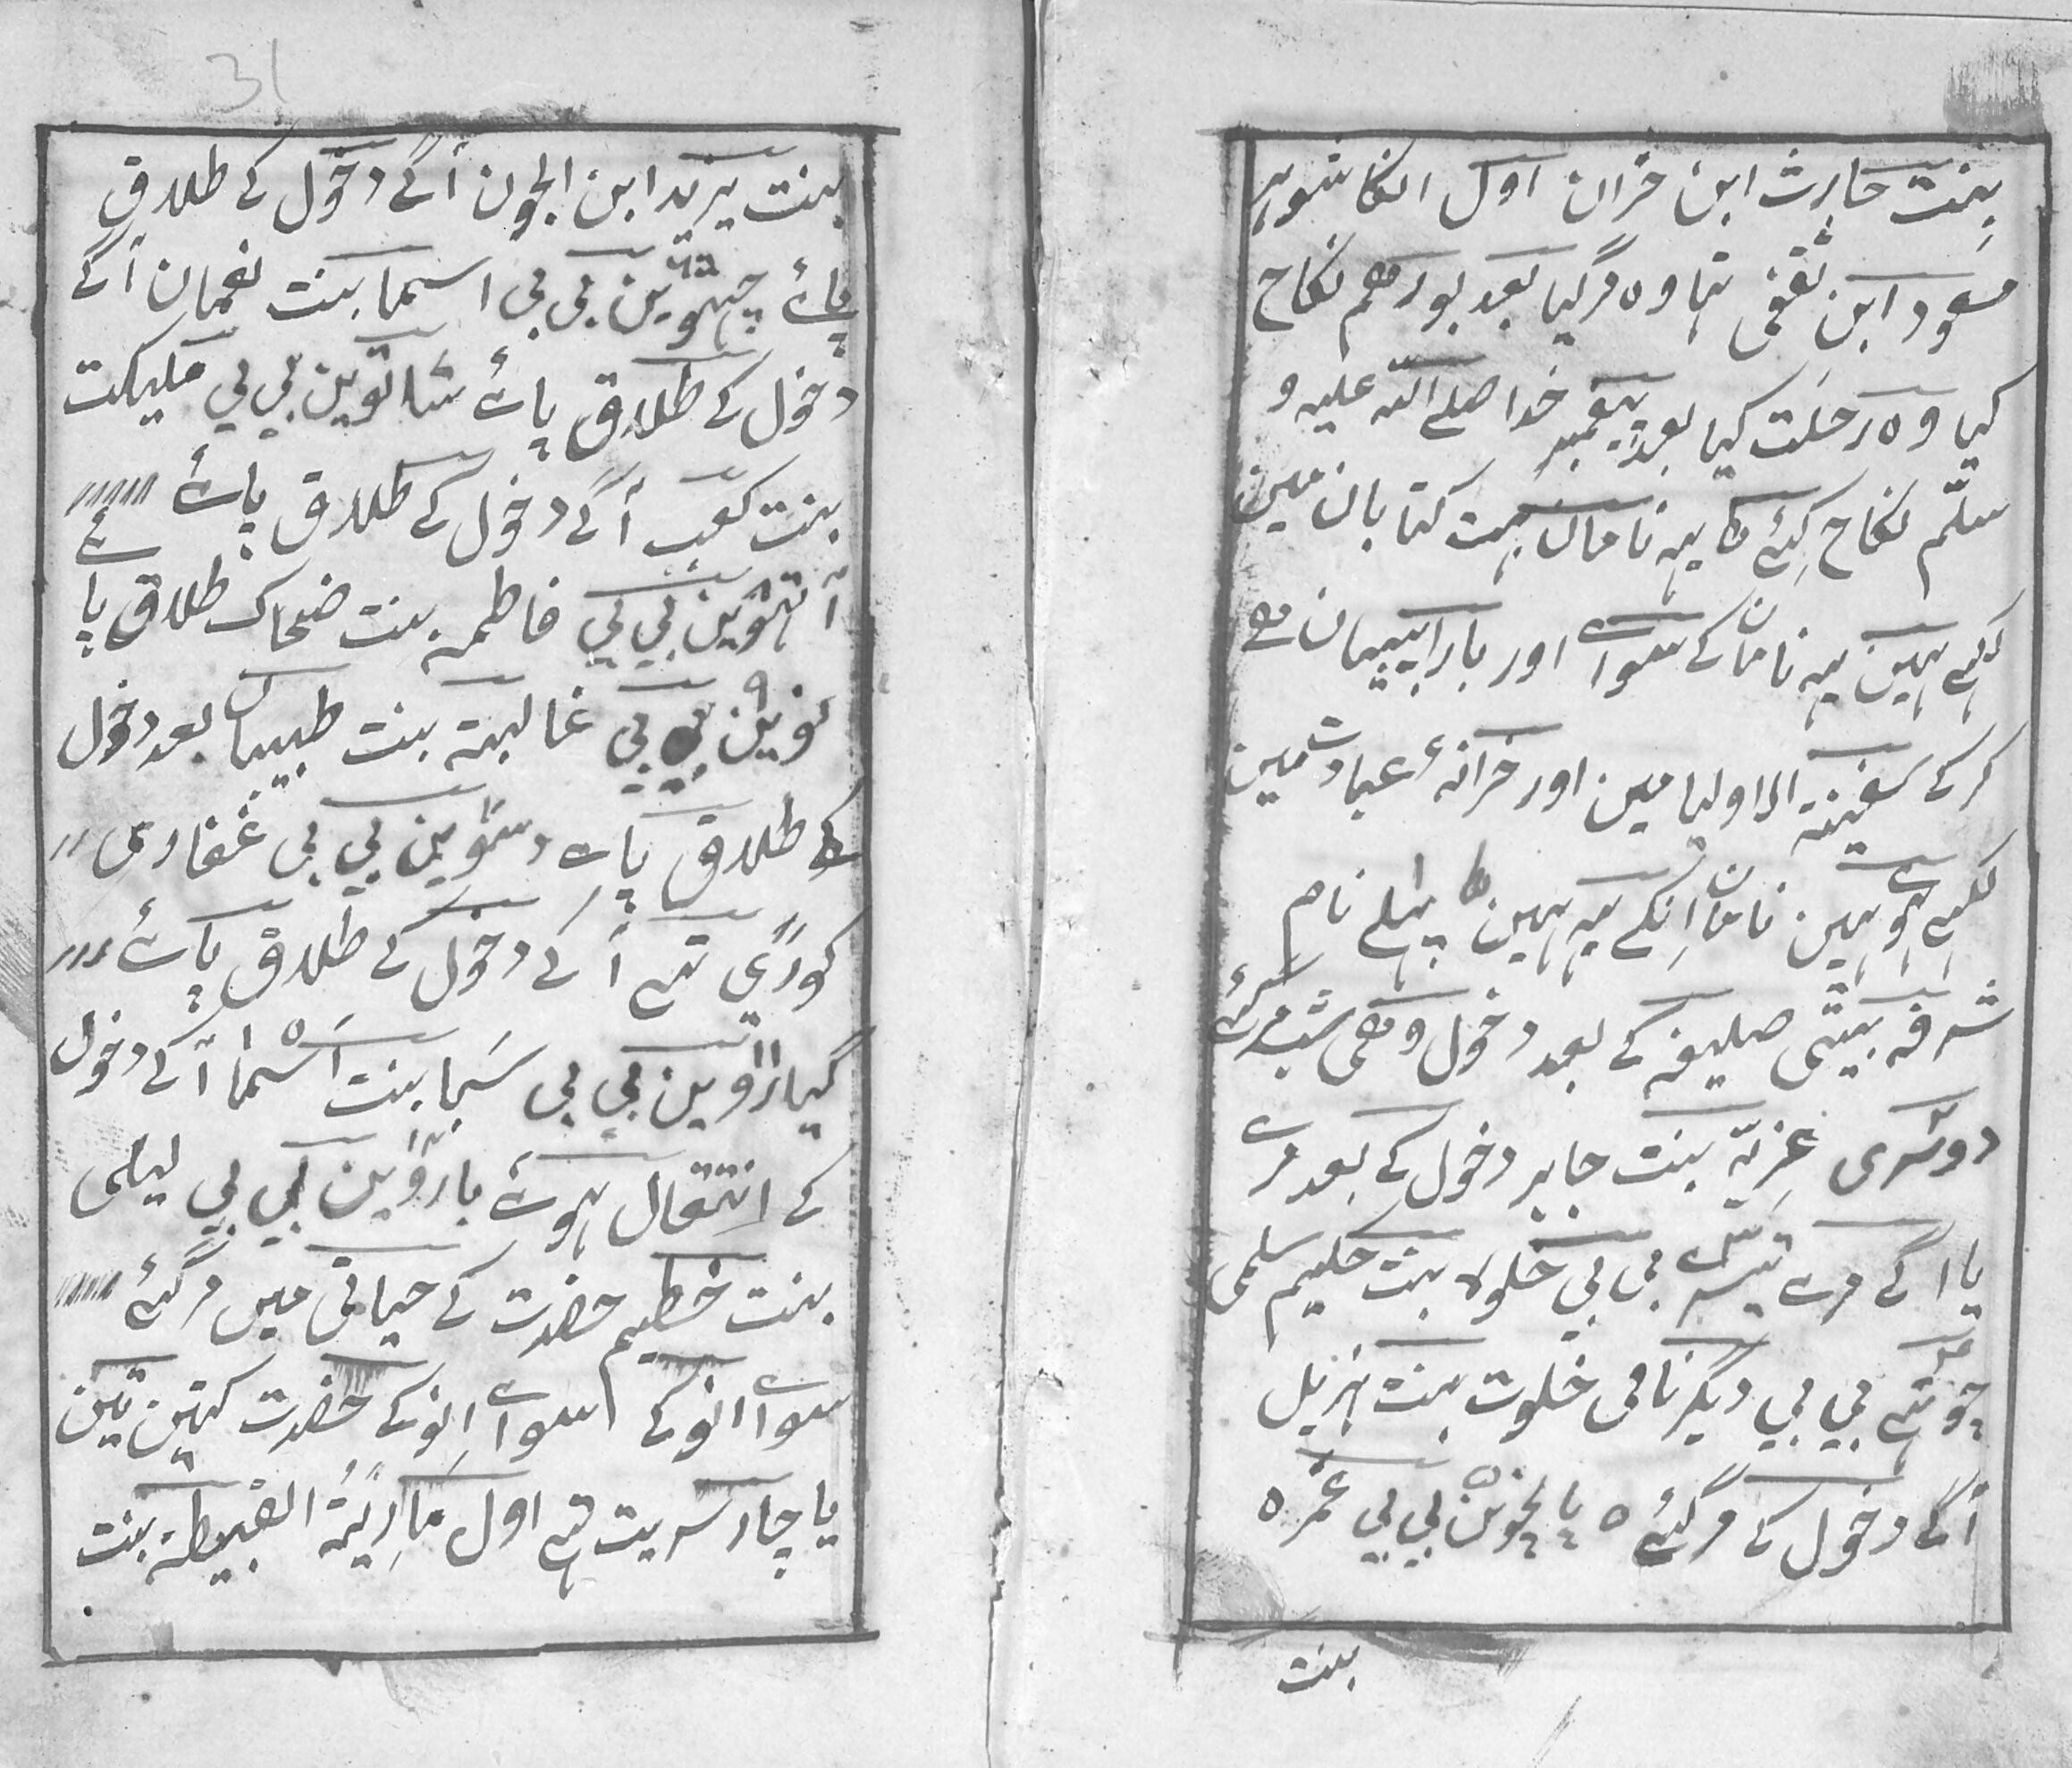 بِنت حارث ابن خزان اول انکا شوہر
مسعود ابن ثقفی تہا وہ مرگیا بعد بو رهم نکاح
کیا وہ رحلت کیا بعد پیغمبر خدا صلے اللّہ علیہ و
سلّم نکاح کِئے یہ نامان بہت کتابان مین
لکہے ہین یہ نامان کے سواے اور بارا بیبیان
کرکے سفینتہ الاولیا مین اور خزانہٴ عبادت مین
لکہے ہوے ہین نامان اِنکے یہ ہین پہلے نام
شرفہ بیٹی صلیفہ کے بعد دخول وهی شب مرگئے
دوسری غزیّہ بنت جابر دخول کے بعد مرے
یا آگے مرے تیسرے بی بی خلولا بنت حکیم سلمی
چوتہے بی بی دیگر نامی خلوت بنت ہزیل
آگے دخول کے مرگئے ٥ پانچوین بی بی عمرہ
بنت
31
بنت یزید ابن الجون آگے دخول کے طلاق
پاے چہٹوین بی بی اسما بنت نعمان آگے
دخول کے طلاق پاے ساتوین بی بی ملیکت
بنت کعب آگے دخول کے طلاق پاے
آٹہوین بی بی فاطمہ بنت ضحاک طلاق پاے
نوین بی بی عالیہ بنت طبیان بعد دخول
کے طلاق پاے دسوین بی بی غفاری
کوڑی تہے آگے دخول کے طلاق پاے
گیاراوین بی بی سَبا بنت اسما آگے دخول
کے انتقال ہوے باراوین بی بی لیلی
بنت خطیم حضرت کے حیاتی مین مرگئے
سواے انوکے سواے اِنوکے حضرت کتین تین
یا چار سریت تہے اول مارِیَۃ القبیطہ بنت